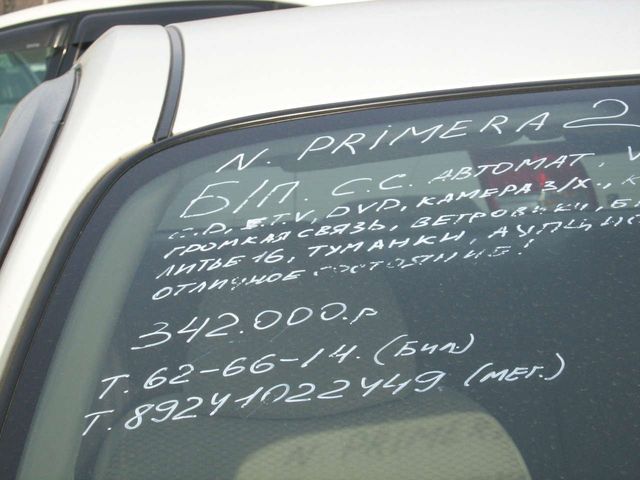 N. PRIMERA 2
Б/П С.С. АВТОМАТ, V
C.D, T.V, DVD, КАМЕРА З/Х., К
ГРОМКАЯ СВЯЗЬ, ВЕТРОВИКИ, Б
ЛИТЬЕ 16, ТУМАНКИ,
ОТЛИЧНОЕ СОСТОЯНИЕ!
342.000.р
Т. 62-66-14. (БИЛ)
Т. 89241022449. (МЕГ.)